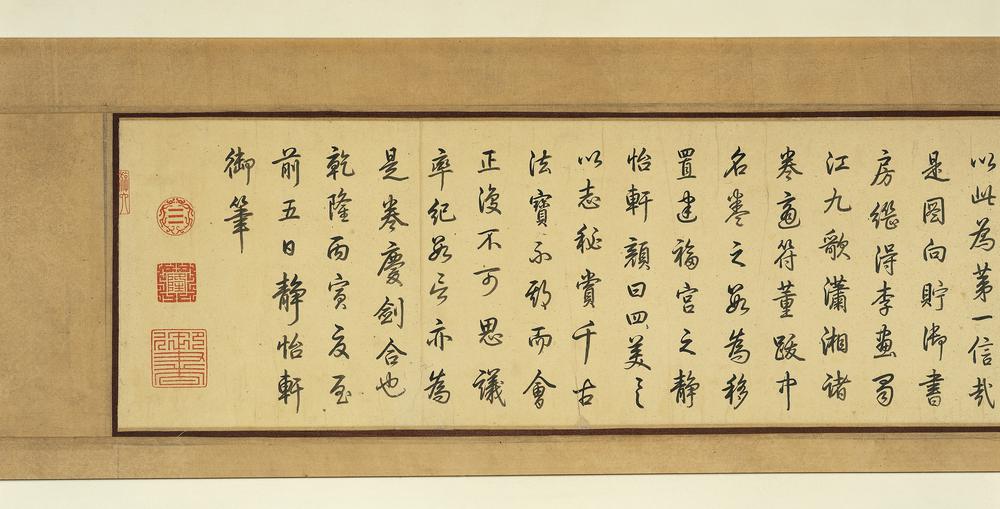 以此為第一信哉
是圖向貯御書
房繼得李畫蜀
江九歌瀟湘諸
卷適符董跋中
名卷之數為移
置建福宮之靜
怡軒顏曰四美之
以志秘賞千古
法寶不期而會
正復不可思議
率紀數言亦為
是卷慶劍合也
乾隆丙寅夏至
前五日靜怡軒
御筆